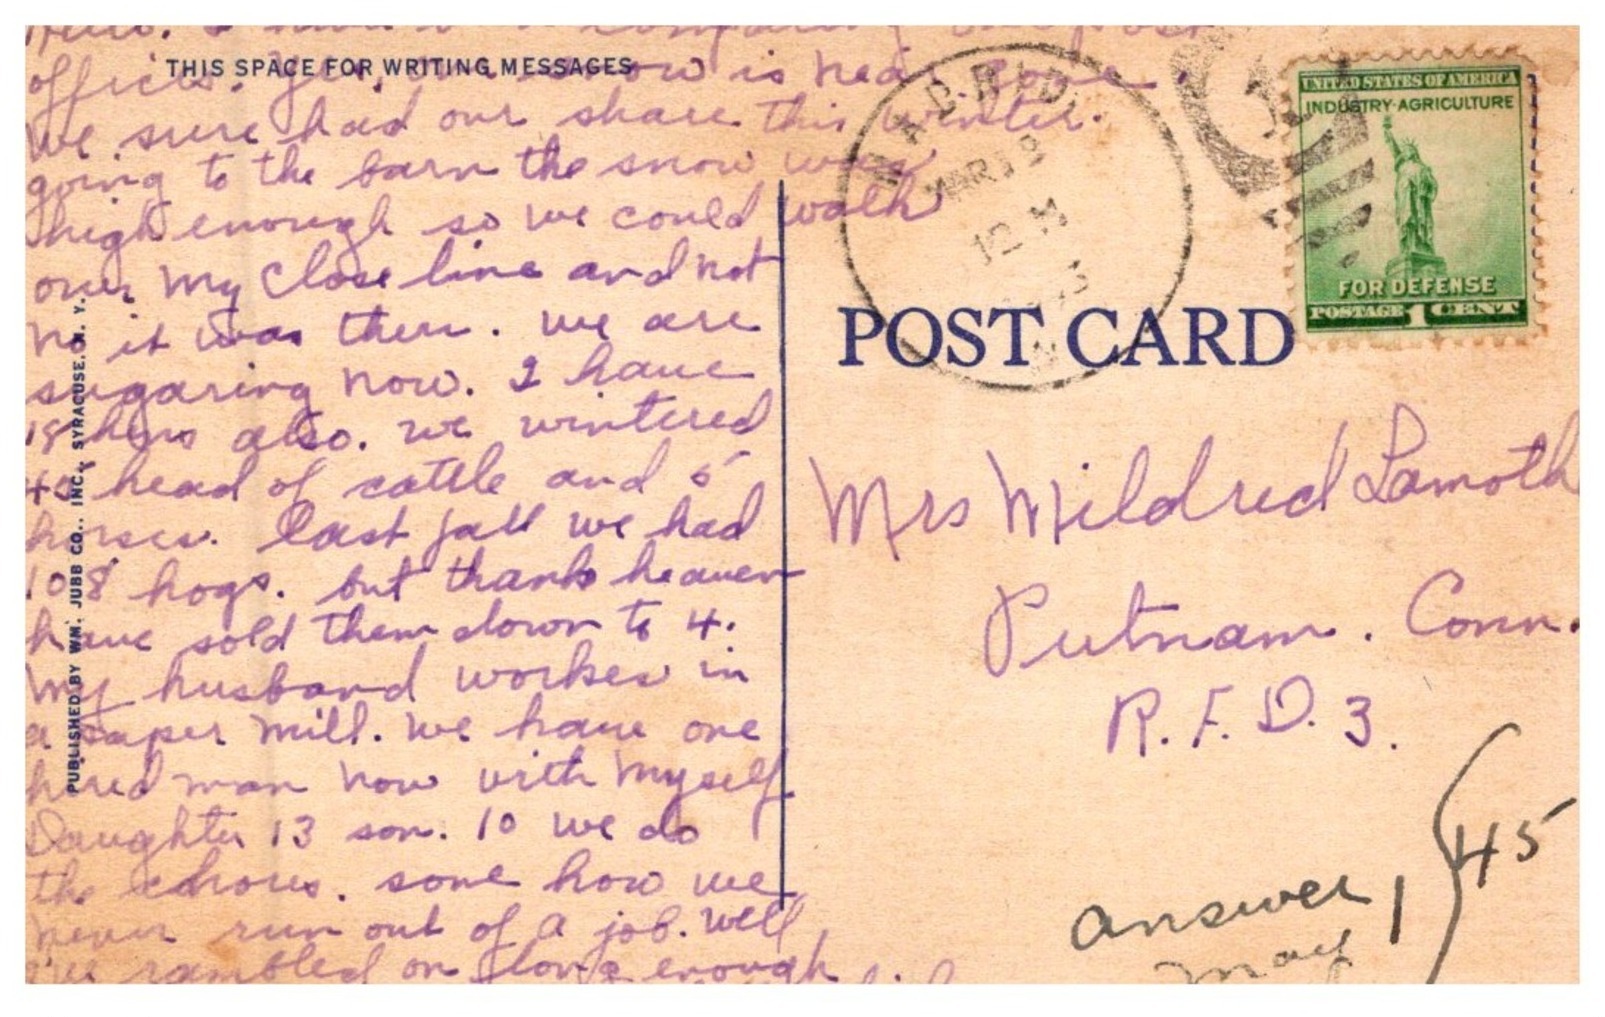 THIS SPACE FOR WRITING MESSAGES
office. Yes, our snow is near gone.
We sure had our share this winter.
going to the barn the snow was
high enough so we could walk
over my close line and not
no it was there. We are
sugaring now. I have
18 hens also. We wintered
40 head of cattle and 5
horses. Last fall we had
108 hogs. but thank heaven
have sold them down to 4.
My husband workes in
a paper mill. We have one
hired man now with myself
Daughter 13 son. 10 we do
the chores. some how we
never run out of a job. Well
I've rambled on long enough
PUBLISHED BY WM. JUBB CO., INC., SYRACUSE, N. Y.
MADRID
MAR 19
12 M
UNITED STATES OF AMERICA
INDUSTRY·AGRICULTURE
FOR DEFENSE
POSTAGE 1 CENT
POST CARD
Mrs Mildred Lamoth
Putnam. Conn.
R. F. D. 3.
answer
May 1 45